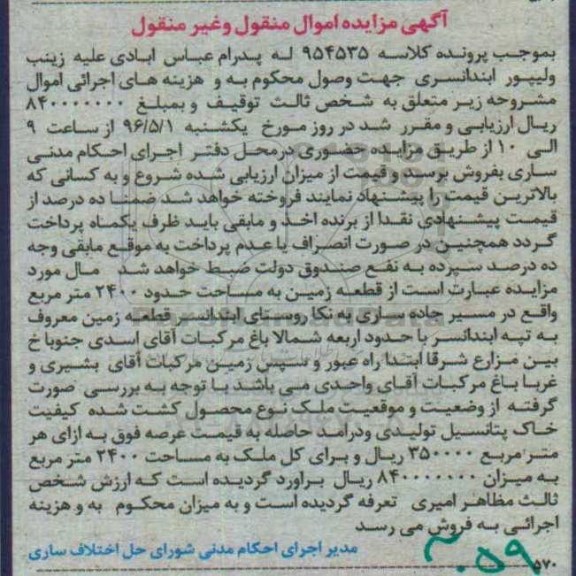 آگهی مزایده اموال منقول وغیر منقول
بموجب پرونده کلاسه ۹۵۴۵۳۵ له پدرام عباس ابادی علیه زینب
ولیپور ابندانسری جهت وصول محکوم به و هزینه های اجرائی اموال
مشروحه زیر متعلق به شخص ثالث توقیف و بمبلغ ۸۴۰۰۰۰۰۰۰
ریال ارزیابی و مقرر شد در روز مورخ یکشنبه ۹۶/۵/۱ از ساعت ۹
الی ۱۰ از طریق مزایده حضوری درمحل دفتر اجرای احکام مدنی
ساری بفروش برسد و قیمت از میزان ارزیابی شده شروع و به کسانی که
بالاترین قیمت را پیشنهاد نمایند فروخته خواهد شد ضمنا ده درصد از
قیمت پیشنهادی نقدا از برنده اخذ و مابقی باید ظرف یکماه پرداخت
گردد همچنین در صورت انصراف یا عدم پرداخت به موقع مابقی وجه
ده درصد سپرده به نفع صندوق دولت ضبط خواهد شد مال مورد
مزایده عبارت است از قطعه زمین به مساحت حدود ۲۴۰۰ متر مربع
واقع در مسیر جاده ساری به نکا روستای ابندانسر قطعه زمین معروف
به تپه ابندانسر با حدود اربعه شمالا باغ مرکبات آقای اسدی جنوبا خ
بین مزارع شرقا ابتدا راه عبور و سپس زمین مرکبات آقای بشیری و
غربا باغ مرکبات آقای واحدی می باشد با توجه به بررسی صورت
گرفته از وضعیت و موقعیت ملک نوع محصول کشت شده کیفیت
خاک پتانسیل تولیدی ودرامد حاصله به قیمت عرصه فوق به ازای هر
متر مربع ۳۵۰۰۰۰ ریال و برای کل ملک به مساحت ۲۴۰۰ متر مربع
به میزان ۸۴۰۰۰۰۰۰۰ ریال براورد گردیده است که ارزش شخص
ثالث مظاهر امیری تعرفه گردیده است و به میزان محکوم به و هزینه
اجرائی به فروش می رسد
مدیر اجرای احکام مدنی شورای حل اختلاف ساری
۵۷۰